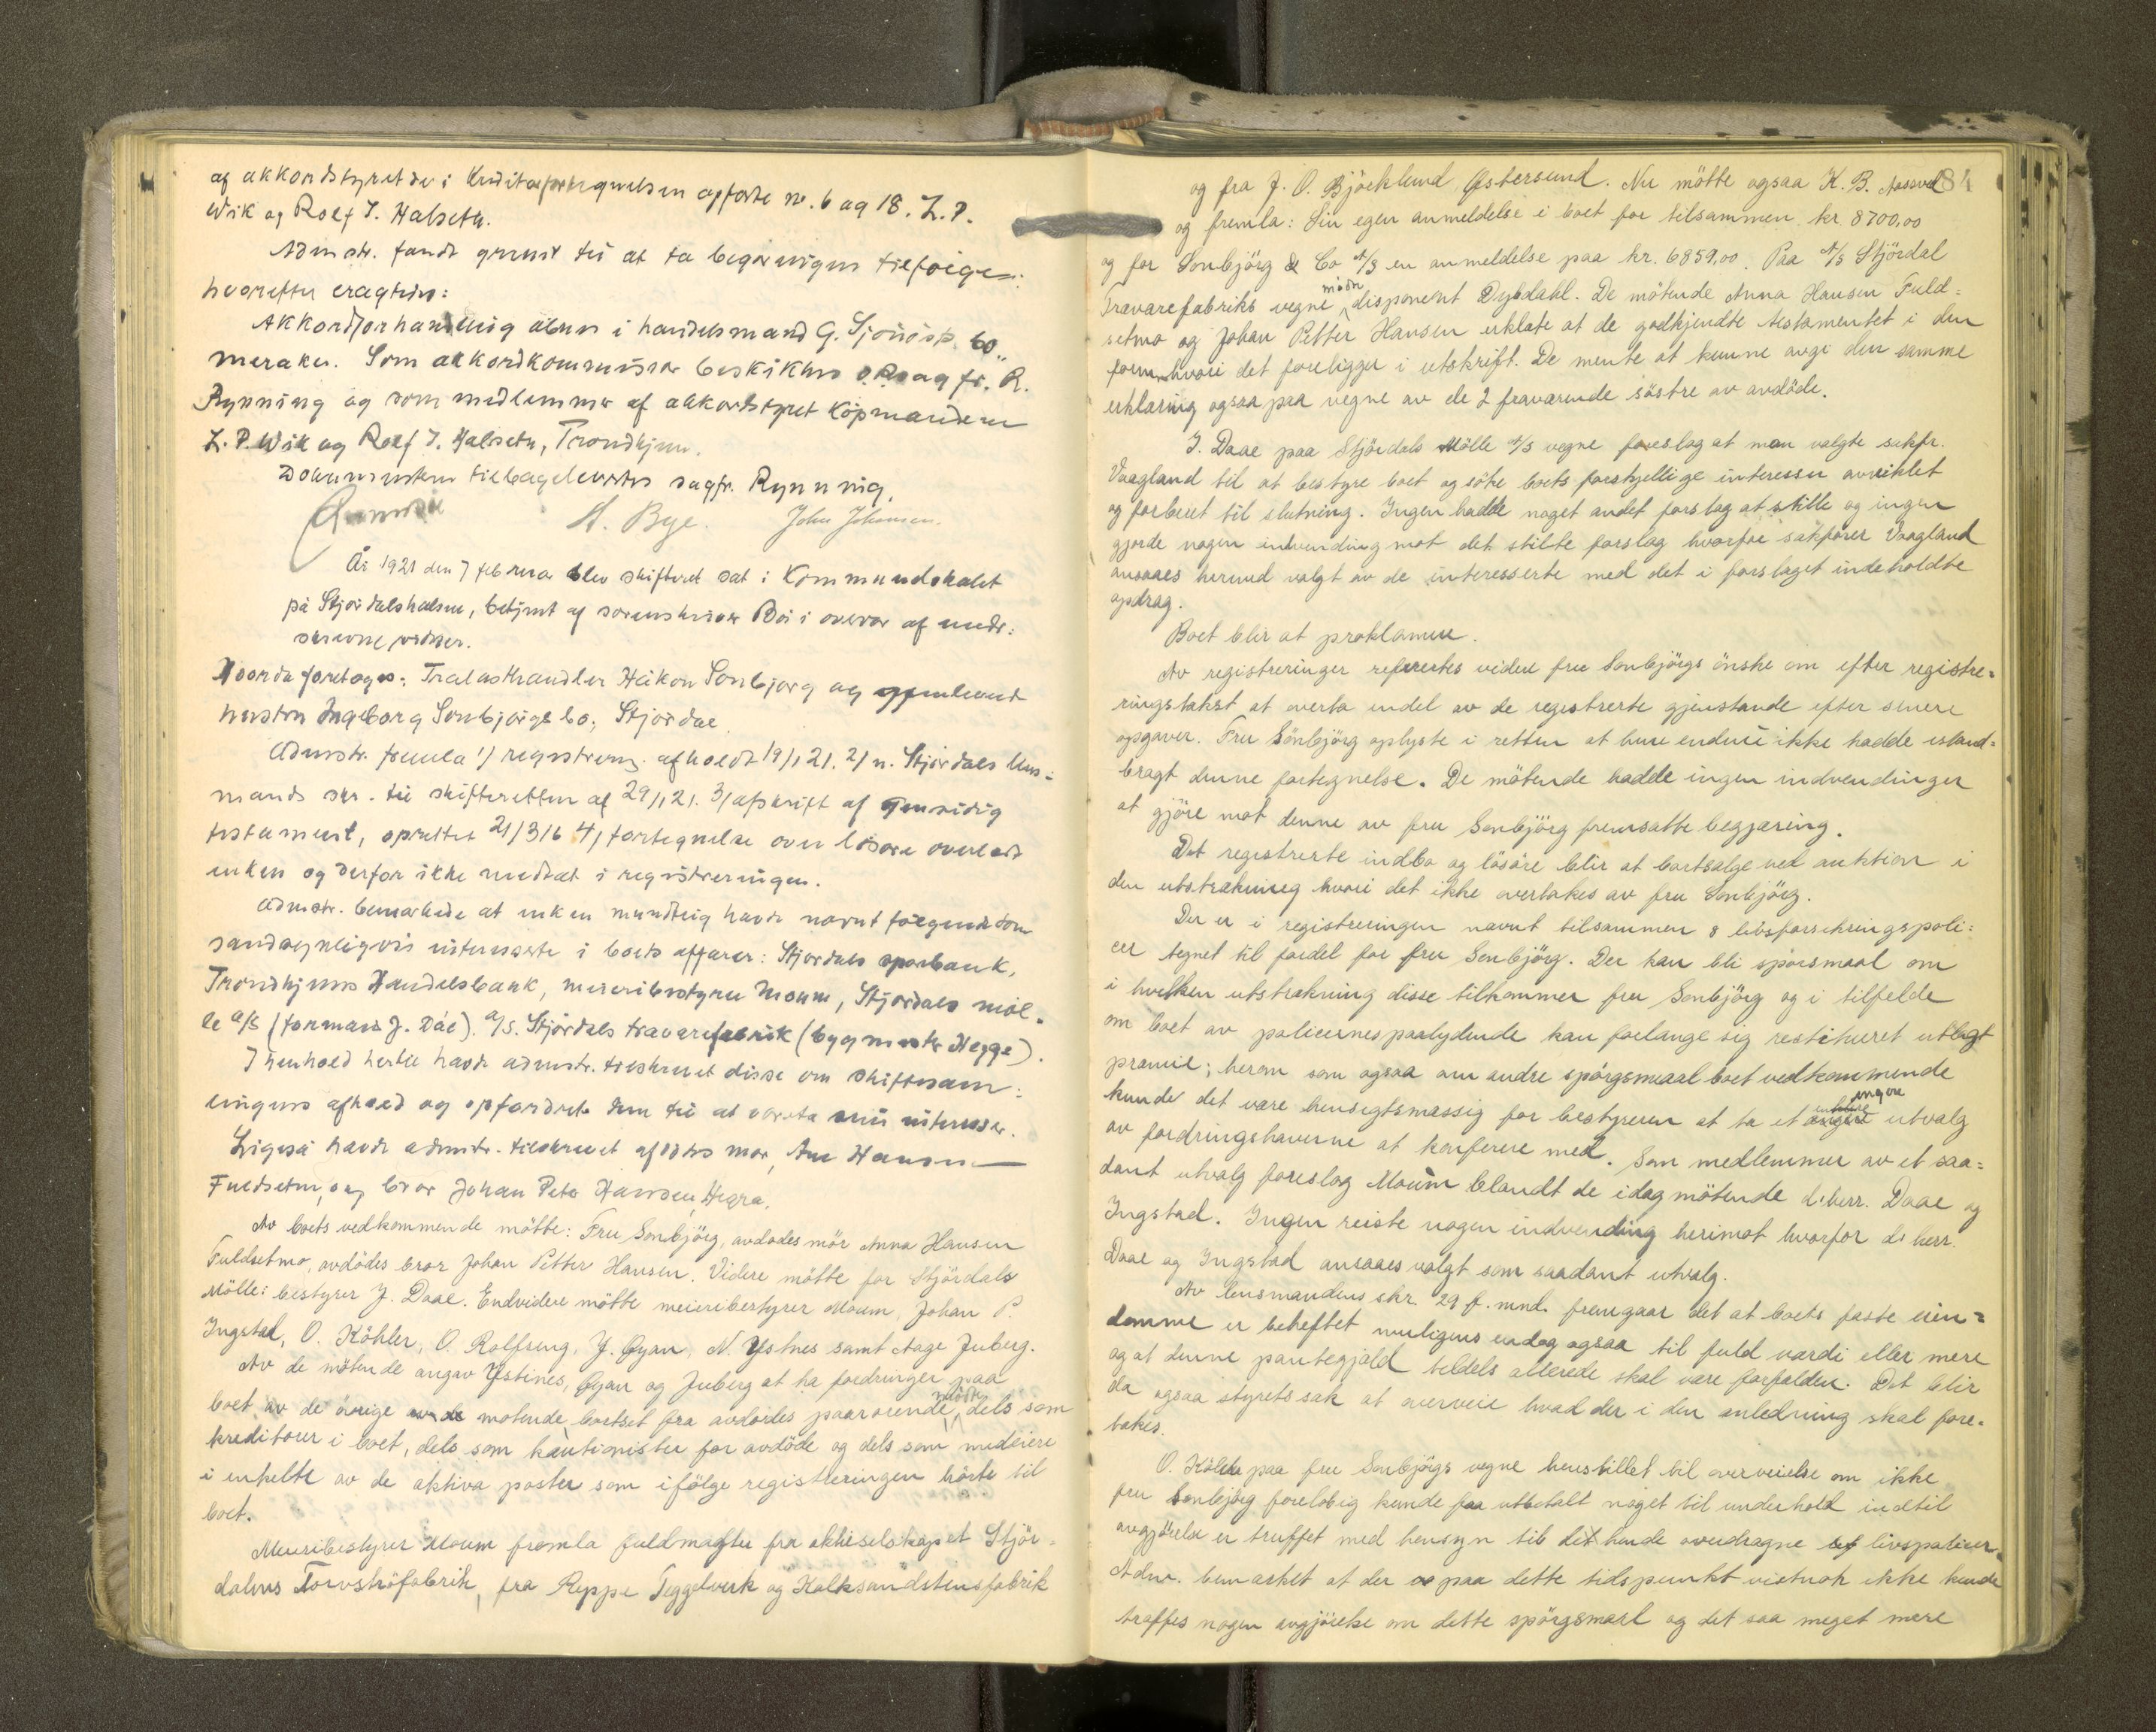 af akkordstyret de i Kreditorfortegnelsen opførte nr. 6 og 18. L.P.
Wik og Rolf I. Halseth.
Admstr. fandt grund til at ta begjæringen tilfølge:
hvorefter eragtedes:
Akkordforhandling åbnes i handelsmand G. Sjøviss bo
meraker. Som akkordkommissær beskikkes o.r.sagfr. R.
Rynning og som medlemmer af akkordstyret Köpmændene
L.P. Wik og Rolf I. Halseth, Trondhjem.
Dokumenterne tilbageleveres sagfr. Rynning.
A. Bye. John Johansen.
År 1921 den 7 februar blev skifteret sat i Kommunelokalet
på Stjørdalshalsen, betjent af sorenskriver Bøi i overvær af undr:
skrevne vidner.
Hvorda foretoges: Trælasthandler Håkon Sonbjørg og gjenlevende
hustru Ingeborg Sonbjørgs bo, Stjørdal
Admstr. fremla 1/ registrering afholdt 19/1 21. 2/ n. Stjørdals lens-
mands skr. til skifteretten af 29/1 21. 3/ afskrift af gensidig
testament, oprettet 21/3 16 4/ fortegnelse over løsøre overladt
enken og derfor ikke medtat i registreringen.
Admstr. bemærkede at enken mundtlig havde nævnt følgende som
sandsynligvis interesserte i boets affærer: Stjørdals sparebank,
Trondhjems Handelsbank, meieribestyrer Moum, Stjørdals møl-
le a/s (formand J. Dåe). a/s. Stjørdals trævarefabrik (bygmester Hegge).
I henhold hertil havde admstr. tilskrevet disse om skiftesam:
lingens afhold og opfordret dem til at vareta sine interesser.
Ligeså havde admstr. tilskrevet afdødes mor, Ane Hansen
Fuldsetmo, og bror Johan Peter Hansen, Hegra.
Av boets vedkommende mötte: Fru Sonbjörg, avdödes mor Anna Hansen
Fuldsetmo, avdödes bror Johan Petter Hansen. Videre mötte for Stjördals
Mölle: bestyrer J. Daae. Endvidere mötte meieribestyrer Moum, Johan P.
Ingstad, O. Köhler, O. Rolfseng, J. Öyan, N. Ystnes samt Aage Juberg.
Av de mötende angav Ystines, Öyan og Juberg at ha fordringer paa
boet av de övrige av de mötende bortset fra avdödes paarörende, mötte dels som
kreditorer i boet, dels som kautionister for avdöde og dels som medeiere
i enkelte av de aktiva poster som ifölge registreringen hörte til
boet.
Meieribestyrer Moum fremla fuldmagter fra aktieselskapet Stjör-
dalens Torvströfabrik, fra Reppe Teggelverk og Kalksandstensfabrik
84
og fra J. O. Bjöcklund Östersund. Nu mötte ogsaa K. B. Aasved
og fremla: Sin egen anmeldelse i boet for tilsammen kr. 8700,00
og for Sonbjörg & Co A/S en anmeldelse paa kr. 6859,00. Paa A/S Stjördal
Trævarefabriks vegne mötte disponent Dybdahl. De mötende Anna Hansen Fuld-
setmo og Johan Petter Hansen erklærte at de godkjendte testamentet i den
form hvori det foreligger i utskrift. De mente at kunne avgi den samme
erklæring ogsaa paa vegne av de 2 fraværende söstre av avdöde.
J. Daae paa Stjördals Mölle A/S vegne foreslog at man valgte sakfr.
Vaagland til at bestyre boet og söke boets forskjellige interesser avviklet
og forberet til slutning. Ingen hadde noget andet forslag at stille og ingen
gjorde nogen indvending mot det stilte forslag hvorfor sakförer Vaagland
ansaaes herved valgt av de interesserte med det i forslaget indeholdte
opdrag.
Boet blir at proklamere.
Av registreringer refererertes videre fru Sonbjörgs önske om efter registre-
ringstakst at overta endel av de registrerte gjenstande efter senere
opgaver. Fru Sönbjörg oplyste i retten at hun endnu ikke hadde istand-
bragt denne fortegnelse. De mötende hadde ingen indvendinger
at gjöre mot denne av fru Sonbjörg fremsatte begjæring.
Det registrerte indbo og lösöre blir at bortsælge ved auktion i
den utstrækning hvori det ikke overtakes av fru Sonbjörg.
Der er i registreringen nævnt tilsammen 8 livsforsikringspoli-
cer tegnet til fordel for fru Sonbjörg. Der kan bli spörsmaal om
i hvilken utstrækning disse tilkommer fru Sonbjörg og i tilfælde
om boet av policernes paalydende kan forlange sig restitueret utlagt
præmie; herom som ogsaa om andre spörgsmaal boet vedkommende
kunde det være hensigtsmæssig for bestyreren at ta et engere utvalg
av fordringshaverne at konferere med. Som medlemmer av et saa-
dant utvalg foreslog Moum blandt de idag mötende d'herr. Daae og
Ingstad. Ingen reiste nogen indvending herimot hvorfor d'herr.
Daae og Ingstad ansaaes valgt som saadant utvalg.
Av lensmandens skr. 29 f. mnd. fremgaar det at boets faste eien-
domme er beheftet muligens endog ogsaa til fuld værdi eller mere
og at denne pantegjæld tildels allerede skal være forfalden. Det blir
da ogsaa styrets sak at overveie hvad der i den anledning skal fore-
takes.
O. Köhler paa fru Sonbjörgs vegne henstillet til overveielse om ikke
fru Sonbjörg forelöbig kunde faa utbetalt noget til underhold indtil
avgjörelse er truffet med hensyn til det hende overdragne livspolicer.
Adm. bemærket at der paa dette tidspunkt vistnok ikke kunde
træffes nogen avgjörelse om dette spörgsmaal og det saa meget mere